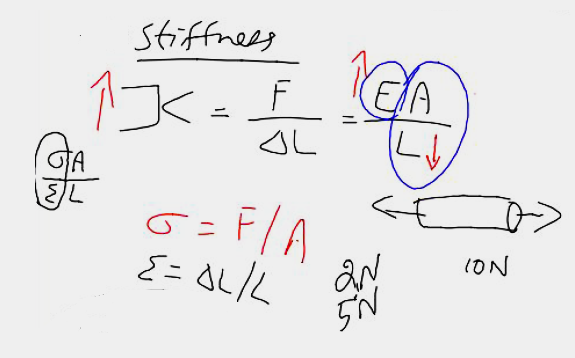 Stiffness
K = F/ΔL = EA/L
σA/εL
σ = F/A
ε = ΔL/L
10N
2N
5N